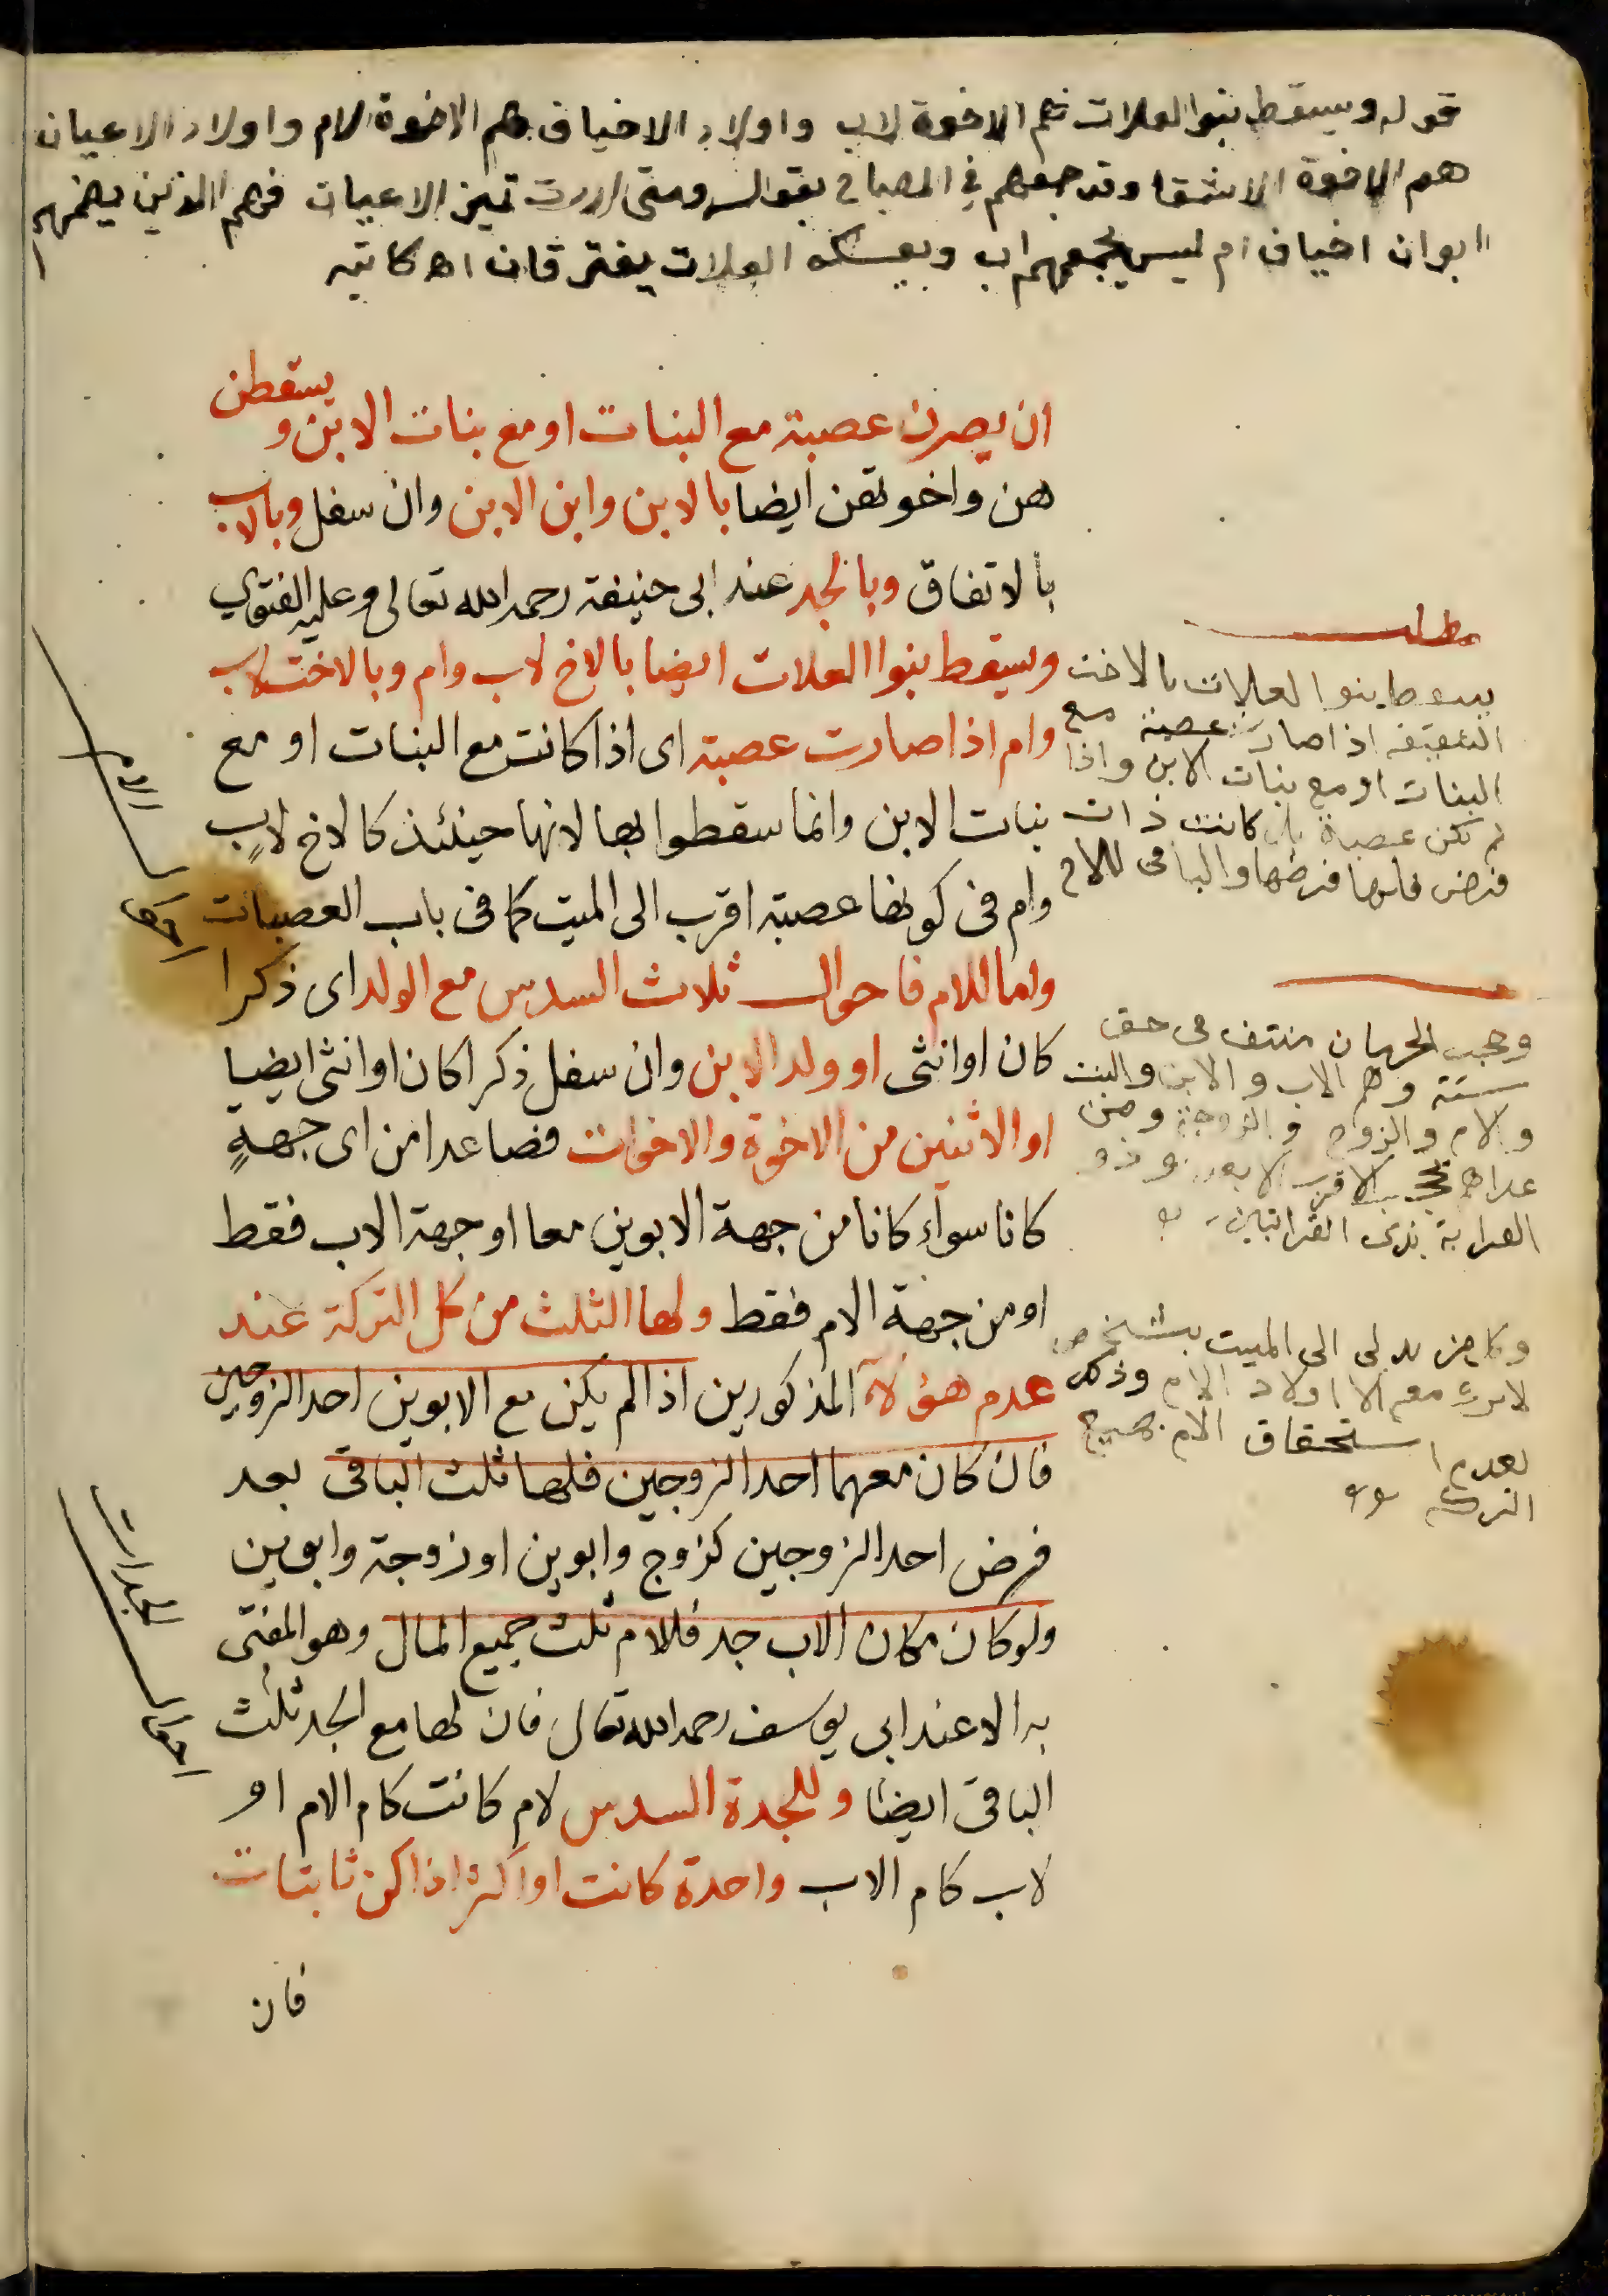 قوله ويسقط بنوا العلات هم الاخوة لاب واولاد الاخياف هم الاخوة لام واولاد الاعيان
هم الاخوة الاشقا وقد جمعهم في المصباح بقوله ومتى اردت تميز الاعيان فهم الذين يضمهم
ابوان اخياف ام ليس يجمعهم اب وبعكسه العلات يفترقان اه كاتبه
ان يصرن عصبة مع البنات او مع بنات الابن ويسقطن
هن واخوتهن ايضا بالابن وابن الابن وان سفل وبالاب
بالاتفاق وبالجد عند ابى حنيفة رحمه الله تعالى وعليه الفتوى
ويسقط بنوا العلات ايضا بالاخ لاب وام وبالاخت لاب
وام اذا صارت عصبة اى اذا كانت مع البنات او مع
بنات الابن وانما سقطوا بها لانها حينئذ كالاخ لاب
وام فى كونها عصبة اقرب الى الميت كما فى باب العصبات
واما للام فاحوال ثلاث السدس مع الولد اى ذكرا
كان او انثى او ولد الابن وان سفل ذكرا كان او انثى ايضا
او الاثنين من الاخوة والاخوات فصاعدا من اى جهة
كانا سواء كانا من جهة الابوين معا او جهة الاب فقط
او من جهة الام فقط ولها الثلث من كل التركة عند
عدم هؤلاء المذكورين اذا لم يكن مع الابوين احد الزوجين
فان كان معهما احد الزوجين فلها ثلث الباقى بعد
فرض احد الزوجين كزوج وابوين او زوجة وابوين
ولو كان مكان الاب جد فللام ثلث جميع المال وهو المفتى
به الا عند ابى يوسف رحمه الله تعالى فان لها مع الجد ثلث
الباقى ايضا وللجدة السدس لام كانت كام الام او
لاب كام الاب واحدة كانت او اكثر اذا كن ثابتات
فان
مطلب
يسقط بنوا العلات بالاخت
الشقيقة اذا صارت عصبة مع
البنات او مع بنات الابن واذا
لم تكن عصبة بل كانت ذات
فرض فلها فرضها والباقى للاخ
وحجب الحرمان منتف فى حق
ستة وهم الاب والابن والبنت
والام والزوج والزوجة ومن
عداهم يحجب الاقرب الابعد وذو
القرابة بذى القرابتين
وكل من يدلى الى الميت بشخص
لا يرث معه الا اولاد الام وذلك
لعدم استحقاق الام جميع
التركة
احوال الام
احوال الجدات